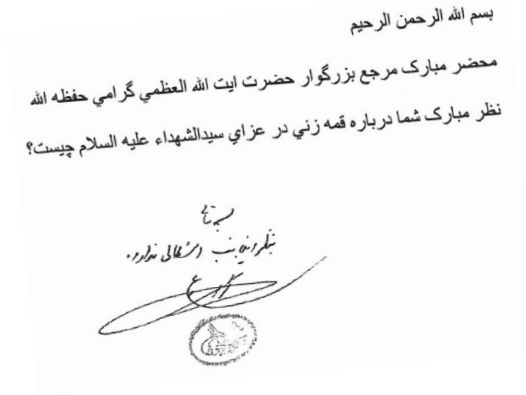 بسم الله الرحمن الرحیم
محضر مبارک مرجع بزرگوار حضرت ایت الله العظمي گرامي حفظه الله
نظر مبارک شما درباره قمه زني در عزاي سیدالشهداء علیه السلام چیست؟
بسمه تعالی
بنظر اینجانب اشکالی ندارد.